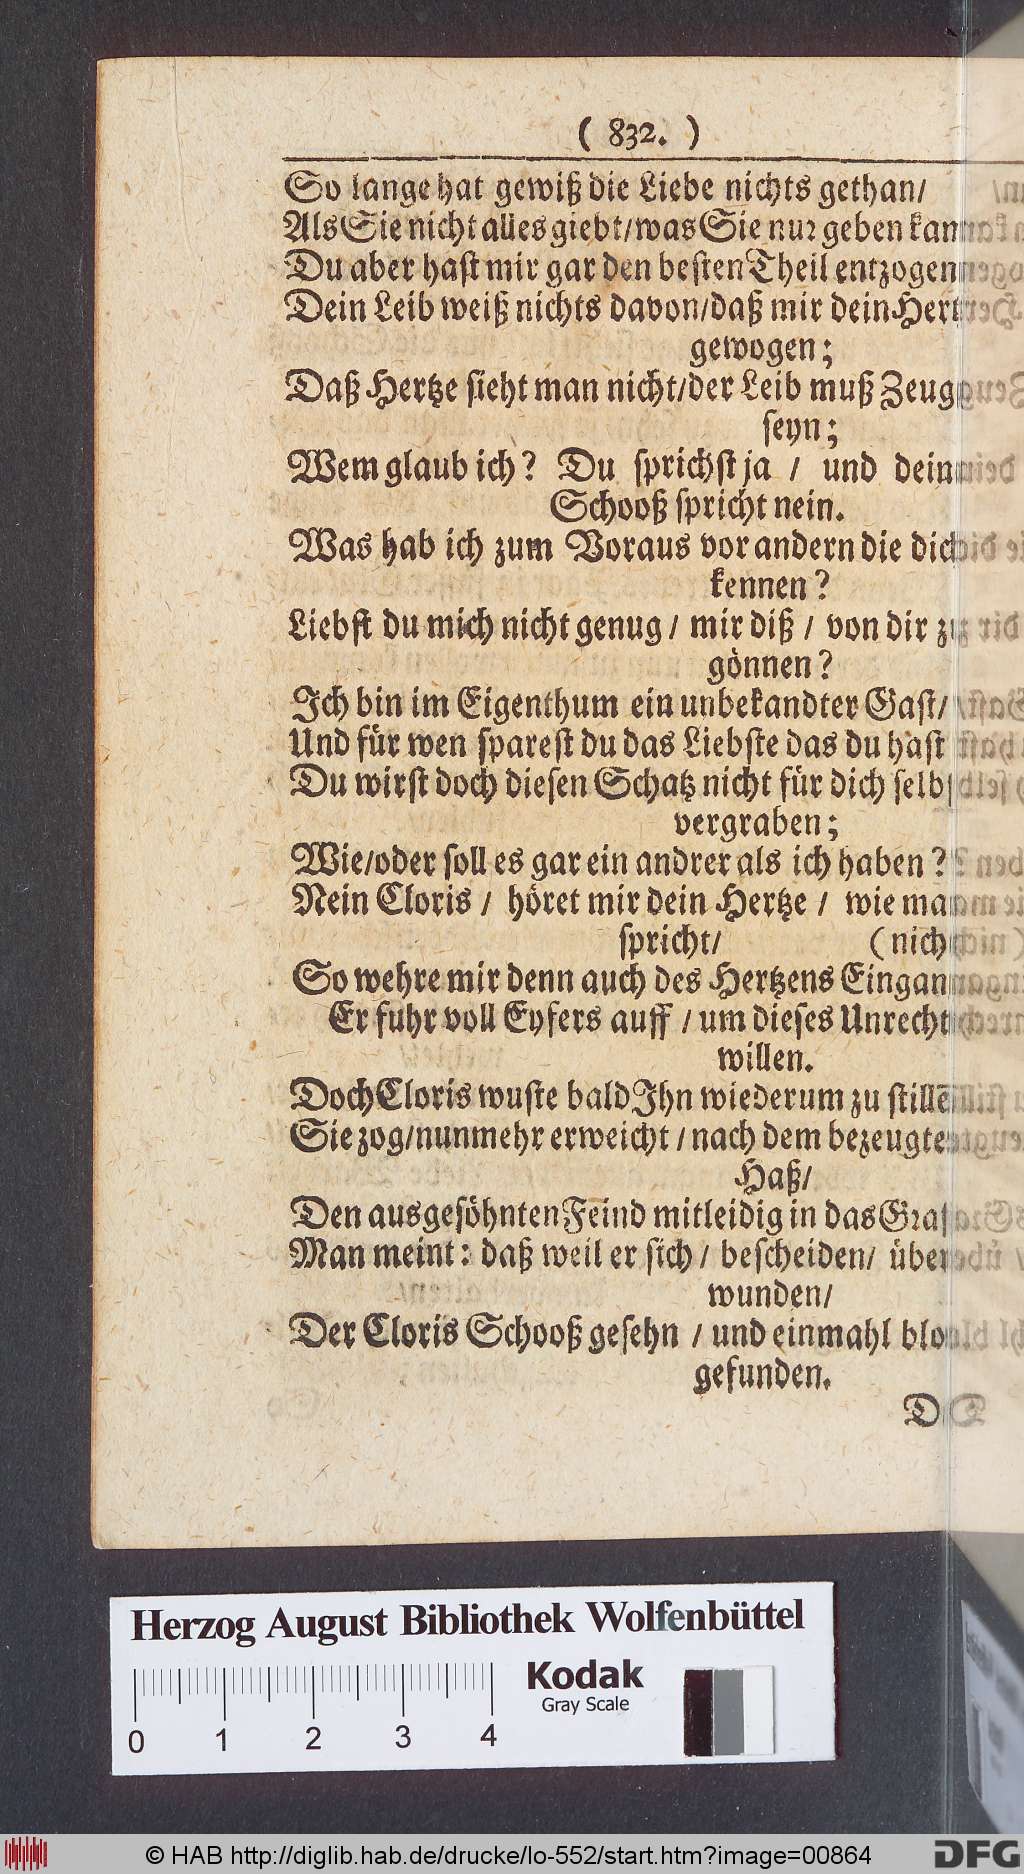 ( 832. )
So lange hat gewiß die Liebe nichts gethan/
Als Sie nicht alles giebt/was Sie nur geben kan
Du aber hast mir gar den besten Theil entzogen
Dein Leib weiß nichts davon/daß mir dein Hertz
gewogen;
Daß Hertze sieht man nicht/der Leib muß Zeug
seyn;
Wem glaub ich? Du sprichst ja / und dein
Schooß spricht nein.
Was hab ich zum Voraus vor andern die dich
kennen?
Liebst du mich nicht genug / mir diß / von dir zu
gönnen?
Ich bin im Eigenthum ein unbekandter Gast/
Und für wen sparest du das Liebste das du hast
Du wirst doch diesen Schatz nicht für dich selbst
vergraben;
Wie/oder soll es gar ein andrer als ich haben?
Nein Cloris / höret mir dein Hertze / wie man
spricht/ (nicht
So wehre mir denn auch des Hertzens Eingang
Er fuhr voll Eyfers auff / um dieses Unrecht
willen.
Doch Cloris wuste bald Ihn wiederum zu stillē
Sie zog/nunmehr erweicht / nach dem bezeugten
Haß/
Den ausgesöhnten Feind mitleidig in das Graß
Man meint: daß weil er sich / bescheiden/ über
wunden/
Der Cloris Schooß gesehn / und einmahl bloß
gefunden.
D
Herzog August Bibliothek Wolfenbüttel
Kodak
Gray Scale
0 1 2 3 4
© HAB http://diglib.hab.de/drucke/lo-552/start.htm?image=00864
DFG